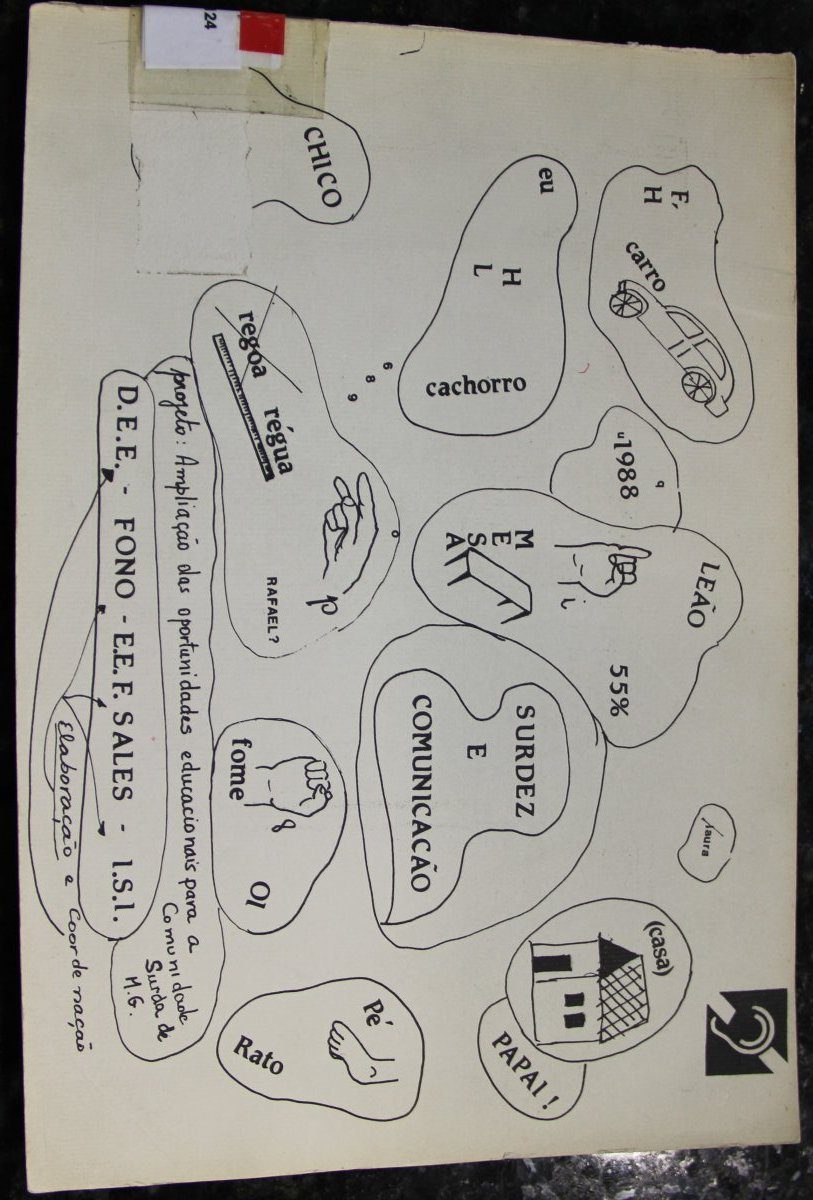 F,
H
carro
laura
(casa)
PAPAI!
LEÃO
55%
"1988"
i
M
E
S
A
eu
H
L
cachorro
SURDEZ
E
COMUNICACÃO
6
8
9
Pé
Rato
CHICO
regoa
régua
p
RAFAEL?
8
fome
OI
24
projeto: Ampliação das oportunidades educacionais para a
Comunidade
Surda de
M.G.
D.E.E. - FONO - E.E.F. SALES - I.S.I.
Elaboração e Coordenação